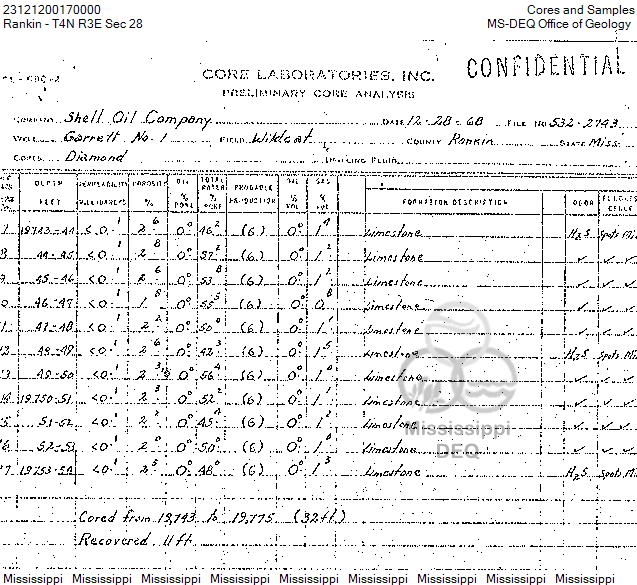 23121200170000 Cores and Samples
Rankin - T4N R3E Sec 28 MS-DEQ Office of Geology
CORE LABORATORIES, INC. CONFIDENTIAL
PRELIMINARY CORE ANALYSIS
COMPANY Shell Oil Company DATE 12-28-68 FILE NO 532-2743
WELL Garrett No. 1 FIELD Wildcat COUNTY Rankin STATE Miss.
CORES Diamond DRILLING FLUID
DEPTH FEET PERMEABILITY MILLIDARCYS POROSITY % OIL % PORE TOTAL WATER % PORE PROBABLE PRODUCTION OIL % VOL GAS % VOL FORMATION DESCRIPTION ODOR
19743-44 <0.1 2.6 0.0 46.2 (6) 0.0 1.4 Limestone H2S Spots
44-45 <0.1 2.8 0.0 57.2 (6) 0.0 1.2 Limestone ✓ ✓
45-46 <0.1 2.6 0.0 53.8 (6) 0.0 1.2 Limestone ✓ ✓
46-47 <0.1 1.8 0.0 55.5 (6) 0.0 0.8 Limestone ✓ ✓
47-48 <0.1 2.2 0.0 50.0 (6) 0.0 1.1 Limestone ✓ ✓
<0.1 2.6 0.0 42.3 (6) 0.0 1.5 Limestone H2S Spots
49-50 <0.1 0.0 56.4 (6) 0.0 1.0 Limestone ✓ ✓
19,750-51 <0.1 2.3 0.0 52.2 (6) 0.0 Limestone ✓ ✓
51-52 <0.1 2.2 0.0 45.4 (6) 0.0 1.2 Limestone ✓ ✓
52-53 <0.1 2.0 0.0 50.0 (6) 0.0 1.0 Limestone ✓ ✓
19753-54 <0.1 2.5 0.0 48.0 (6) 0.0 1.3 Limestone H2S Spots
Mississippi
DEQ
Cored from 19,743 to 19,775 (32 ft)
Recovered 11 ft
Mississippi Mississippi Mississippi Mississippi Mississippi Mississippi Mississippi Mississippi Mississippi